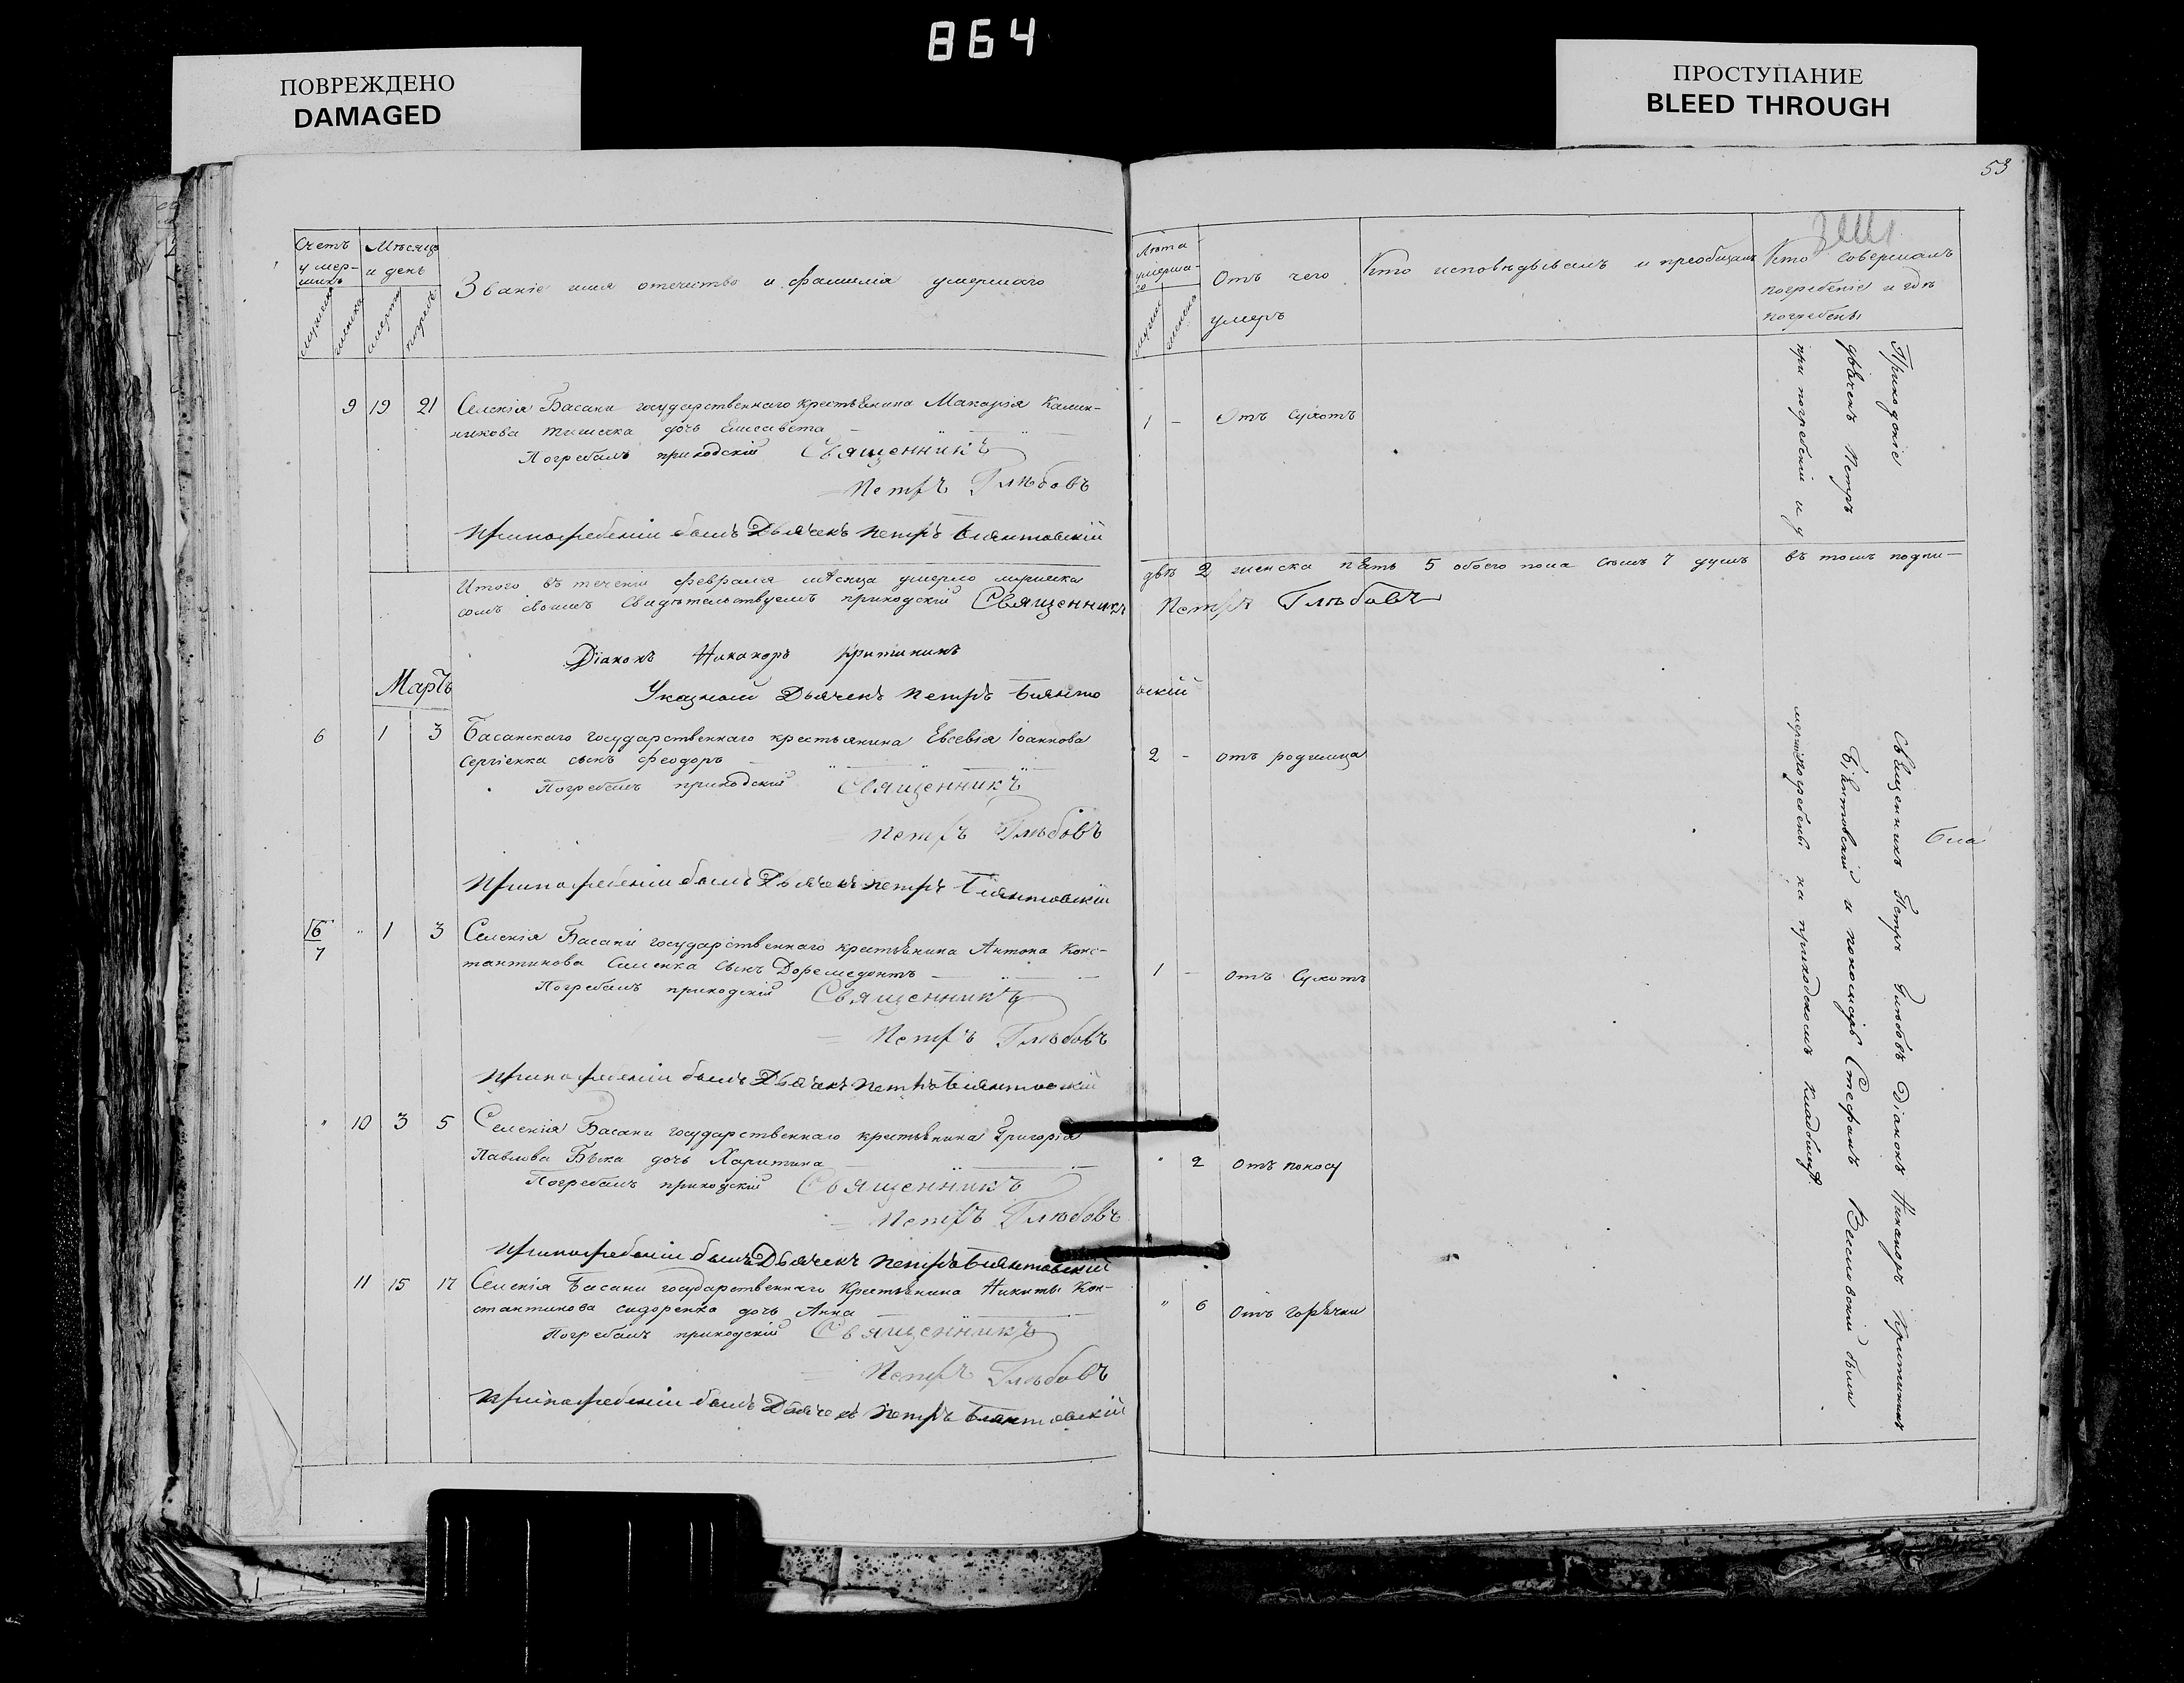 864
ПОВРЕЖДЕНО
DAMAGED
ПРОСТУПАНИЕ
BLEED THROUGH
53
Счетъ умер-шихъ
Мѣсяцъ и день
Званіе имя отечество и фамилія умершаго
Лѣта умерша-го
Отъ чего умеръ
Кто исповѣдывалъ и преобщалъ
Кто совершалъ
погребеніе и гдѣ
погребены
9 19 21 Селенія Басани государственнаго крестьянина Макарія Калин-
никова дочь Елисавета
1 - Отъ сухотъ
Погребалъ приходскій Священникъ
Петръ Глѣбовъ
При погребеніи былъ Дьячекъ Петръ Біянтовскій
Приходскіе
дьячекъ Петръ
при погребеніи и у
Итого въ теченіи февраля мѣсяца умерло мужеска
двѣ 2 женска пять 5 обоего пола семь 7 душъ въ томъ подпи-
сомъ своимъ свидѣтельствуемъ приходскій Священникъ Петръ Глѣбовъ
Діаконъ Никаноръ Критининъ
Указный Дьячекъ Петръ Біянто вскій
Мартъ
6 1 3 Басанскаго государственнаго крестьянина Евсевія Іоаннова
Сергіенка сынъ Феодоръ
2 - отъ родимца
Погребалъ приходскій Священникъ
Петръ Глѣбовъ
При погребеніи былъ Дьячекъ Петръ Біянтовскій
16
7
" 1 3 Селенія Басани государственнаго крестьянина Антона Конс-
тантинова сынъ Доремедонтъ
1 - отъ сухотъ
Погребалъ приходскій Священникъ
Петръ Глѣбовъ
При погребеніи былъ Дьячекъ Петръ Біянтовскій
" 10 3 5 Селенія Басани государственнаго крестьянина Григорія
Павлова Бѣка дочь Харитина
" 2 отъ поносу
Погребалъ приходскій Священникъ
Петръ Глѣбовъ
При погребеніи былъ Дьячекъ Петръ Біянтовскій
11 15 17 Селенія Басани государственнаго крестьянина Никиты Кон-
стантинова сидоренка дочь Анна
" 6 отъ горячки
Погребалъ приходскій Священникъ
Петръ Глѣбовъ
При погребеніи былъ Дьячекъ Петръ Біянтовскій
Священникъ Петръ Глѣбовъ Діаконъ Никаноръ Критининъ
Біянтовскій и пономарь Стефанъ были
погребены на приходскомъ кладбищѣ